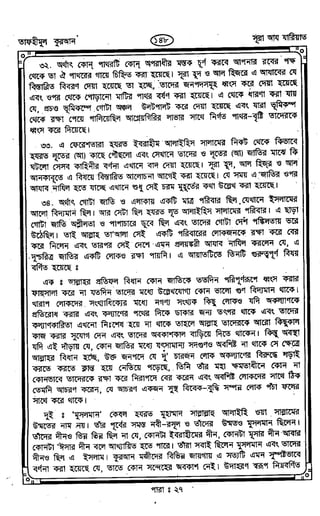 তাফহীমুল কুরআন
১৪৮
সূরা আয যারিয়াত
৩২. অর্থাৎ কোন্ পাথরটি কোন্ অপরাধীর মস্তক চূর্ণ করবে আপনার রবের পক্ষ
থেকে তা ঐ পাথরের গায়ে চিহ্নিত করা হয়েছে। সূরা হূদ ও আল হিজরে এ আযাবের যে
বিস্তারিত বিবরণ দেয়া হয়েছে তা হচ্ছে, তাদের জনপদসমূহ ধ্বংস করে দেয়া হয়েছে
এবং ওপর থেকে পোড়ানো মাটির পাথর বর্ষণ করা হয়েছে। এ থেকে ধারণা করা যায়
যে, প্রচণ্ড ভূমিকম্পে গোটা অঞ্চল উলটপালট করে দেয়া হয়েছে এবং যারা ভূমিকম্প
থেকে রক্ষা পেয়ে পালিয়েছিল আগ্নেয়গিরির লাভার সাথে নির্গত পাথর-বৃষ্টি তাদেরকে
ধ্বংস করে দিয়েছে।
৩৩. এ ফেরেশতারা হযরত ইবরাহীম আলাইহিস সালামের নিকট থেকে কিভাবে
হযরত লূতের (আ) কাছে পৌছলো এবং সেখানে তাদের ও লূতের (আ) জাতির মাঝে কি
ঘটলো সেসব কাহিনীর বর্ণনা এখানে বাদ দেয়া হয়েছে। সূরা হূদ, আল হিজর ও আল
আনকাবূতে এ বিষয়ে বিস্তারিত আলোচনা আগেই করা হয়েছে। যে সময় এ জাতির ওপর
আযাব নাযিল হতে যাচ্ছে এখানে শুধু সেই চরম মুহূর্তের কথা উল্লেখ করা হয়েছে।
৩৪. অর্থাৎ গোটা জাতি ও এলাকায় একটি মাত্র পরিবার ছিল, যেখানে ইসলামের
আলো বিদ্যমান ছিল। আর সেটা ছিল হযরত লূত আলাইহিস সালামের পরিবার। এ ছাড়া
গোটা জাতি অশ্লীলতা ও পাপাচারে ডুবে ছিল এবং তাদের গোটা দেশ পঙ্কিলতায় ভরে
উঠেছিল। তাই আল্লাহ তা'আলা সেই একটি পরিবারের লোকজনকে রক্ষা করে বের
করে নিলেন এবং তারপর সেই দেশে এমন প্রলয়ঙ্করী আযাব নাযিল করলেন যে, এ
দুশ্চরিত্র জাতির একটি লোকও রক্ষা পায়নি। এ আয়াতটিতে তিনটি গুরুত্বপূর্ণ বিষয়
বর্ণিত হয়েছে ঃ
এক ঃ আল্লাহর প্রতিফল বিধান কোন জাতিকে ততদিন পরিপূর্ণরূপে ধ্বংস করার
ফায়সালা করে না যতদিন তাদের মধ্যে উল্লেখযোগ্য কোন ভালো গুণ বিদ্যমান থাকে।
খারাপ লোকদের সংখ্যাধিক্যের মধ্যে নগণ্য সংখ্যক কিছু লোকও যদি অকল্যাণকে
প্রতিরোধ করার এবং কল্যাণের পথের দিকে ডাকার জন্য তৎপর থাকে এবং তাদের
কল্যাণকারিতা এখনো নিঃশেষ হয়ে না থাকে তাহলে আল্লাহ তাদেরকে আরো কিছুকাল
কাজ করার সুযোগ দেন এবং তাদের অবকাশকাল বাড়িয়ে দিতে থাকেন। কিন্তু অবস্থা
যদি এই দাঁড়ায় যে, কোন জাতির মধ্যে যৎসামান্য সদগুণও অবশিষ্ট না থাকে সে ক্ষেত্রে
আল্লাহর বিধান হচ্ছে, উক্ত জনপদে যে দু' চারজন লোক অকল্যাণের বিরুদ্ধে লড়াই
করতে করতে ক্লান্ত হয়ে নেতিয়ে পড়েছে, তিনি তাঁর মহা ক্ষমতাধীনে কোন না
কোনভাবে তাদেরকে রক্ষা করে নিরাপদে বের করেন এবং অবশিষ্ট লোকদের সাথে ঠিক
তেমনি আচরণ করেন, যে আচরণ একজন সুস্থ বিবেক-বুদ্ধি সম্পন্ন লোক পঁচা ফলের
সাথে করে থাকে।
দুই ঃ 'মুসলমান' কেবল হযরত মুহাম্মাদ সাল্লাল্লাহু আলাইহি ওয়া সাল্লামের
উম্মতের নাম নয়। তাঁর পূর্বের সমস্ত নবী-রসূল ও তাঁদের উম্মতও মুসলমান ছিলেন।
তাঁদের দীনও ভিন্ন ভিন্ন ছিল না যে, কোনটা ইবরাহীমের দীন, কোনটা মূসার দীন আবার
কোনটা ঈসার দীন বলে আখ্যায়িত হতে পারে। তাঁরা সবাই ছিলেন মুসলমান এবং তাঁদের
দীনও ছিল এ ইসলাম। কুরআন মজীদের বিভিন্ন জায়গায় এ সত্যটি এমন সুস্পষ্টভাবে
বর্ণনা করা হয়েছে যে, তাতে কোন সন্দেহের অবকাশ নেই। উদাহরণ স্বরূপ নিম্নবর্ণিত
পারা ঃ ২৭